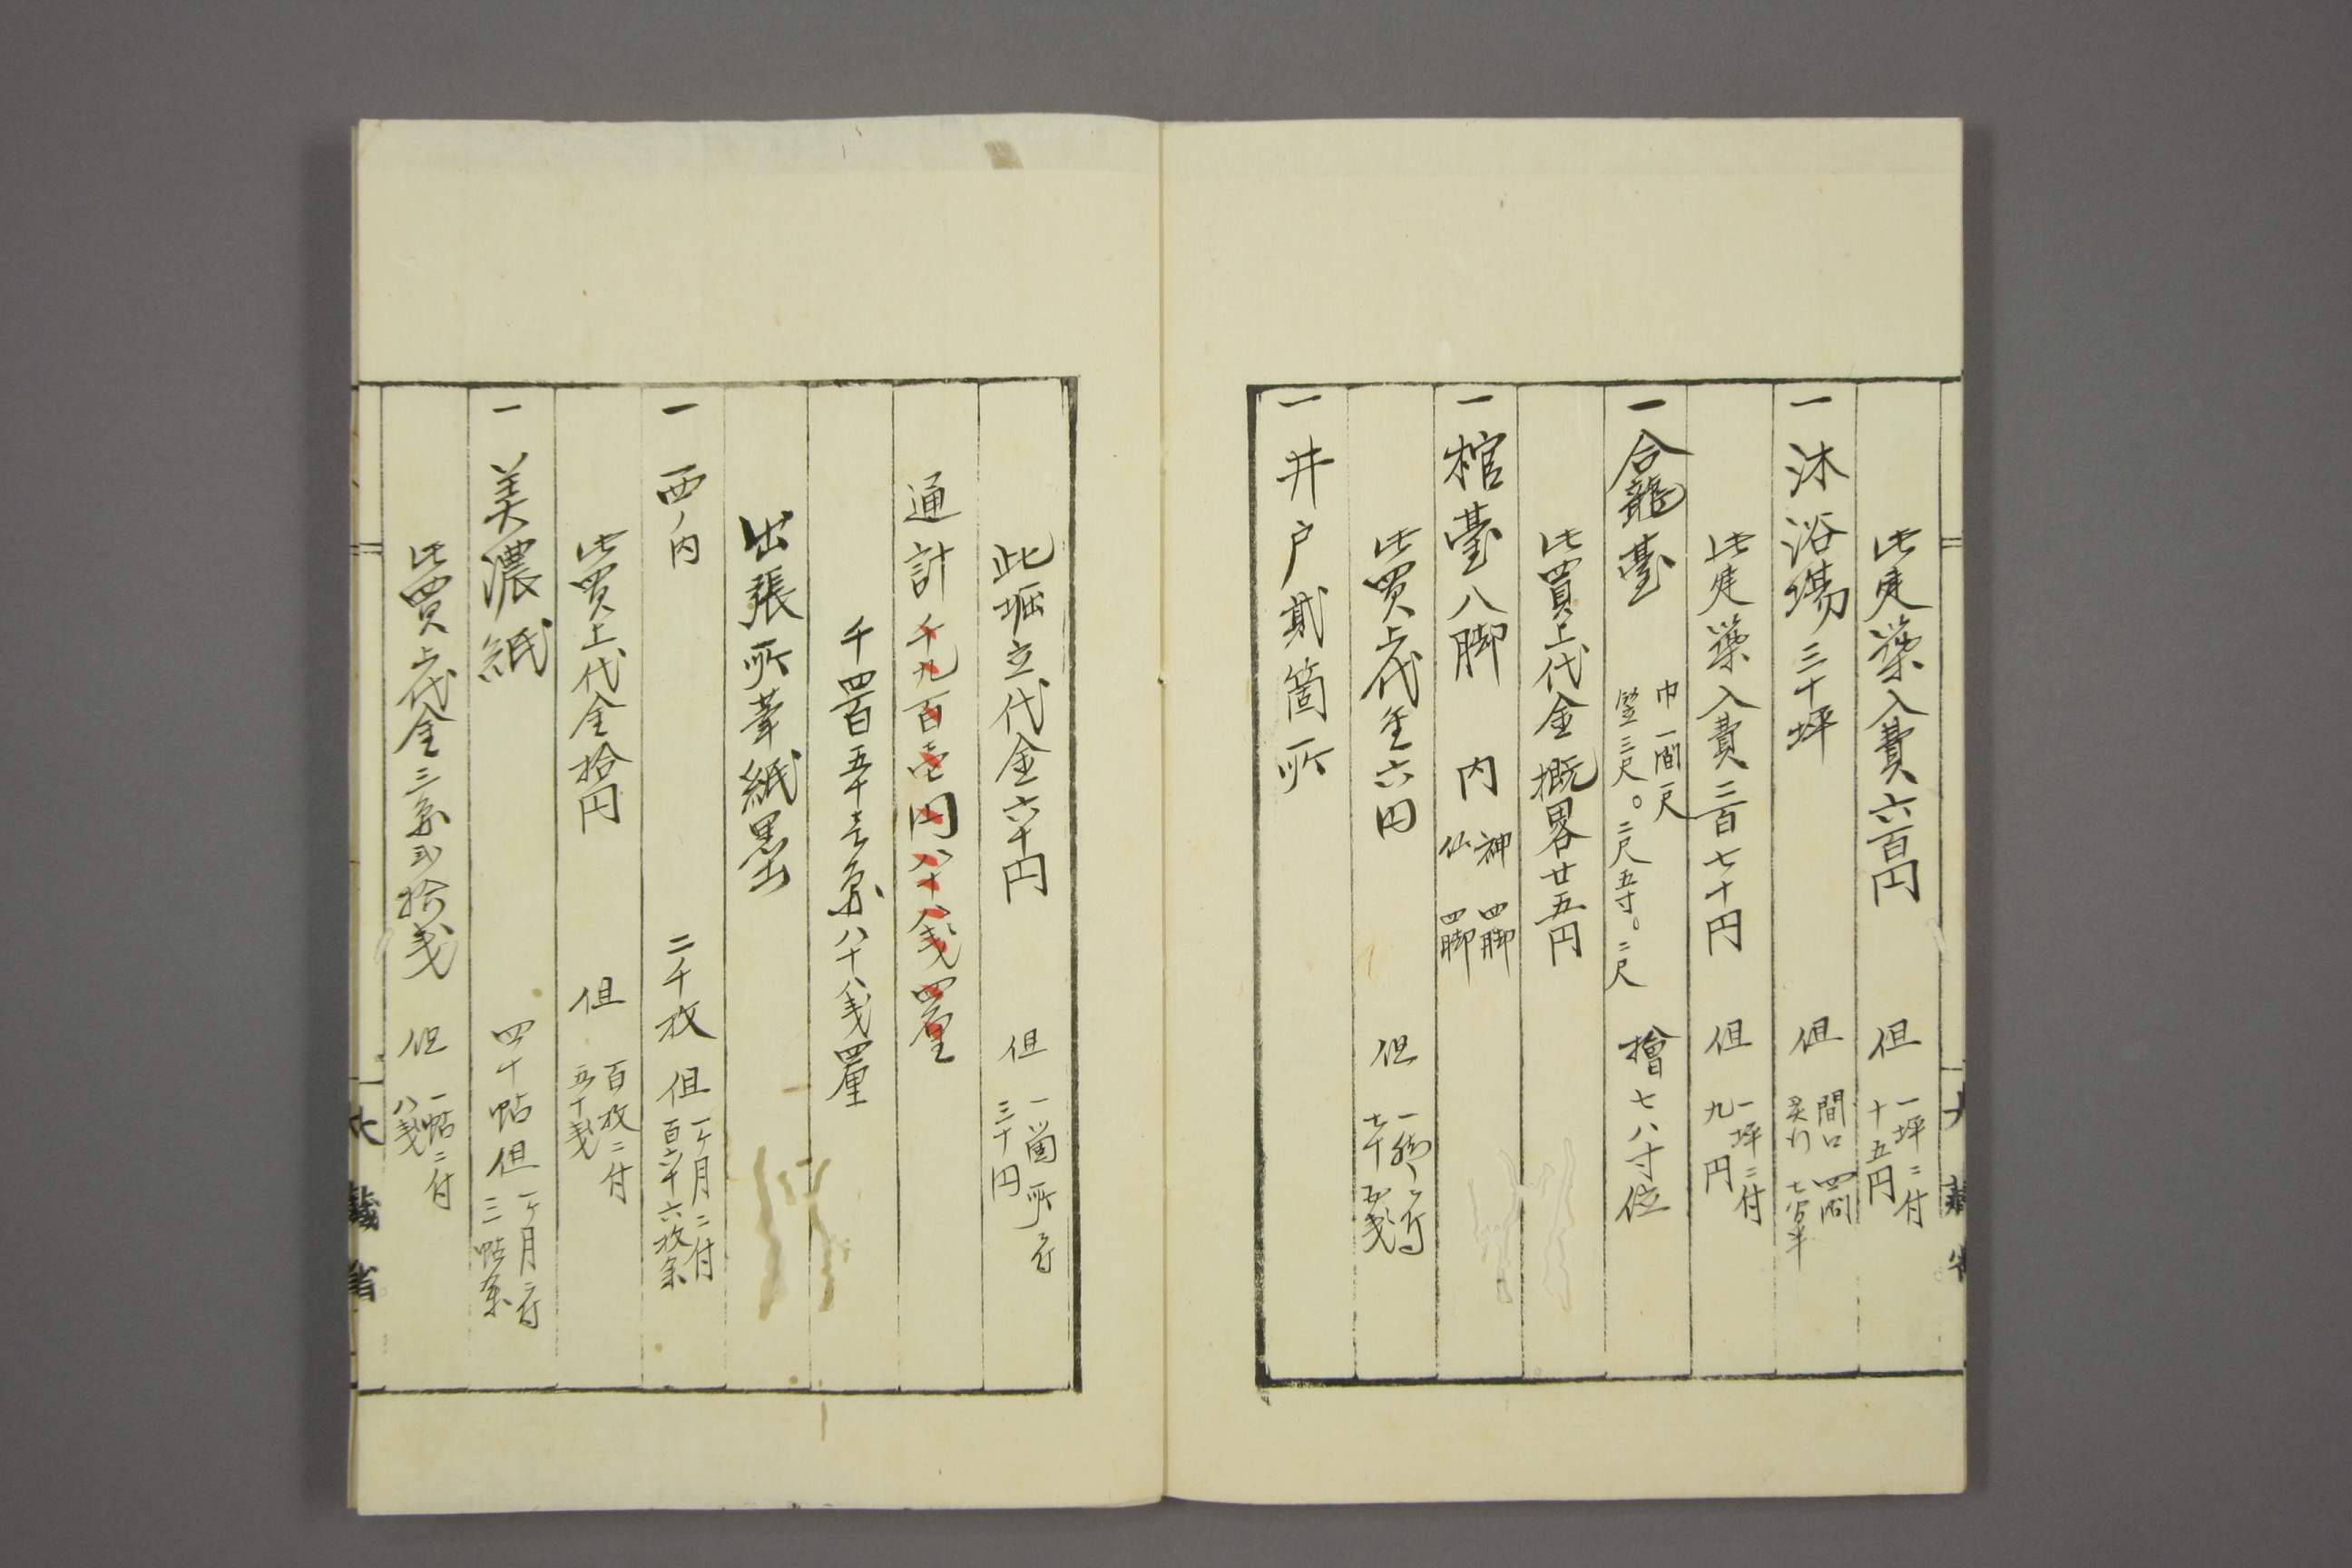 此建築入費六百円　但　一坪ニ付十五円
一沐浴場三十坪　但　間口四間　奥行七間半
此建築入費二百七十円　但　一坪ニ付九円
一合龕臺　巾一間一尺　竪三尺。二尺五寸。二尺　檜七八寸位
此買上代金概畧廿五円
一棺臺八脚　内　神四脚　仏四脚
此買上代金六円　但　一脚ニ付七十五銭
一井戸貳箇所
此堀立代金六十円　但　一箇所ニ付三十円
通計千九百壱円八十八銭四厘
千四百五十壱円八十八銭四厘
出張所筆紙墨
一西ノ内　二千枚　但　一ヶ月ニ付百六十六枚余
此買上代金拾円　但　百枚ニ付五十銭
一美濃紙　四十帖　但　一ヶ月ニ付三帖余
此買上代金三円弐拾銭　但　一帖ニ付八銭
大藏省